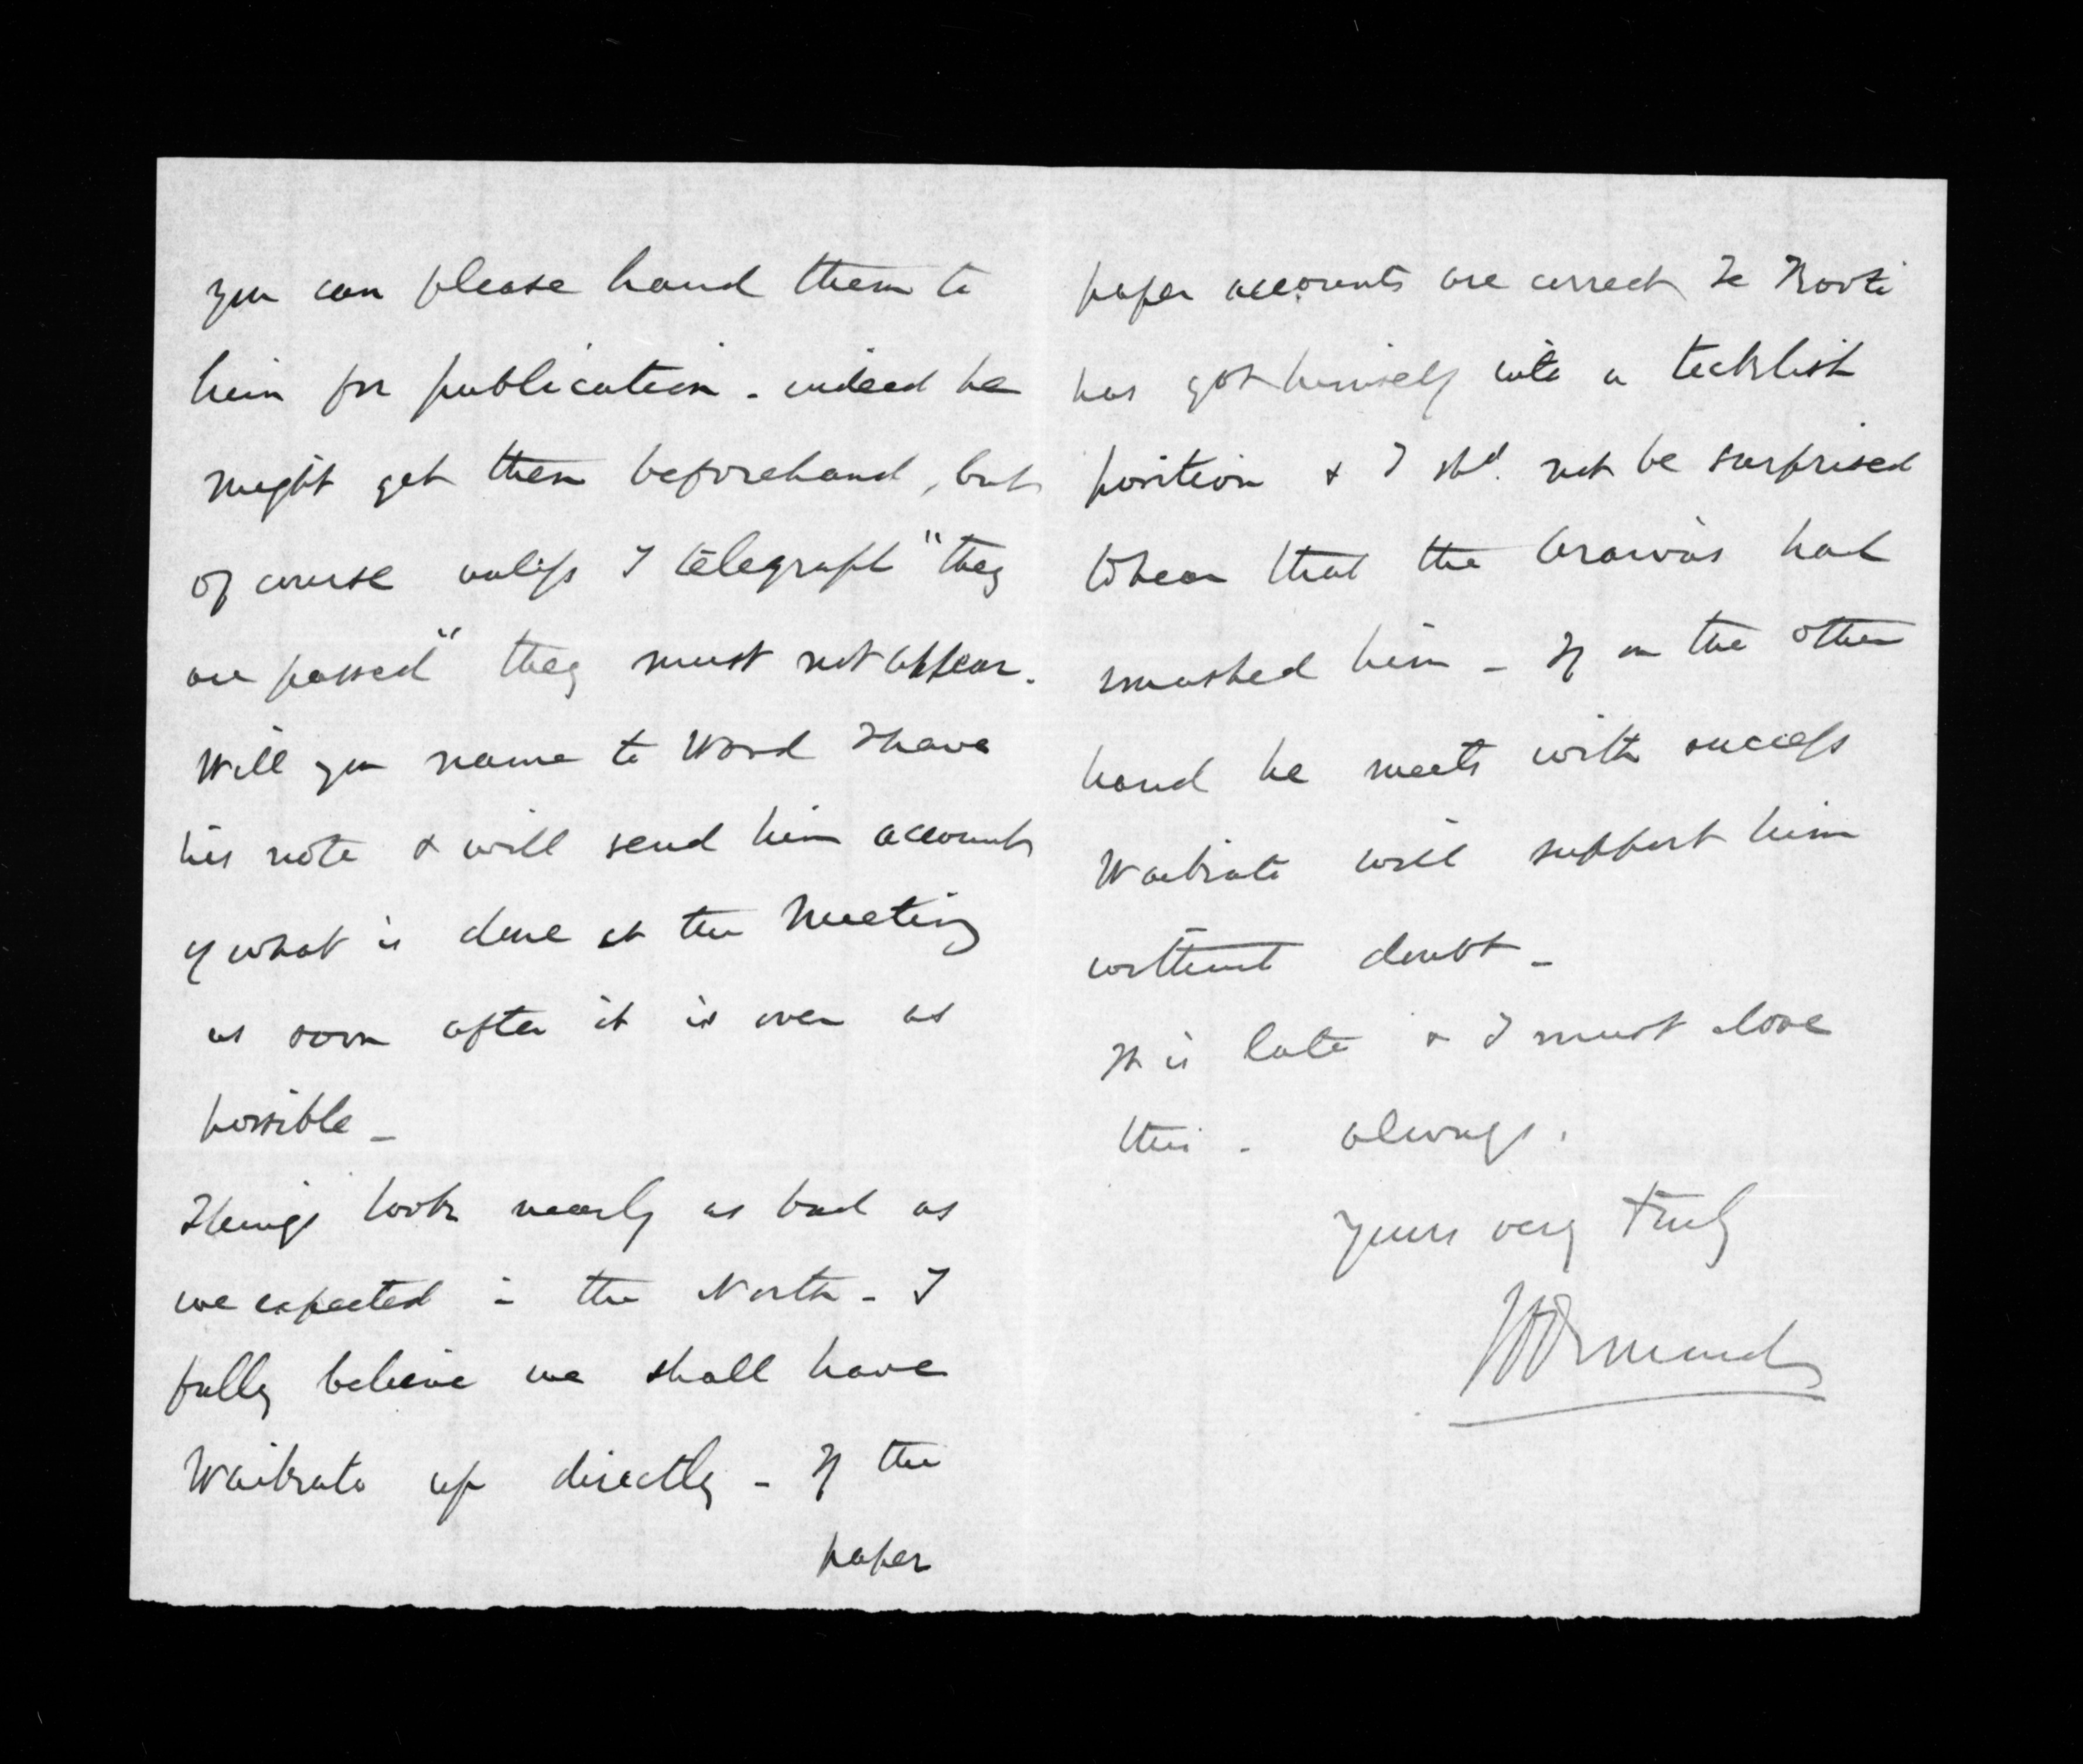 you can please hand them to
him for publication - indeed he
might get them beforehand, but
of course unless I telegraph "they
are passed" they must not appear.
Will you name to Ward I have
his note & will send him accounts
of what is done at the Meeting
as soon after it is over as
possible -
Things look nearly as bad as
we expected in the North - I
fully believe we shall have
Waikato up directly - If the
paper
paper accounts are correct Te Kooti
has got himself into a ticklish
position & I shd. not be surprised
to hear that the Arawas had
smashed him - If on the other
hand he meets with success
Waikato will support him
without doubt -
It is late & I must close
this - always.
Yours very truly
JD Ormond